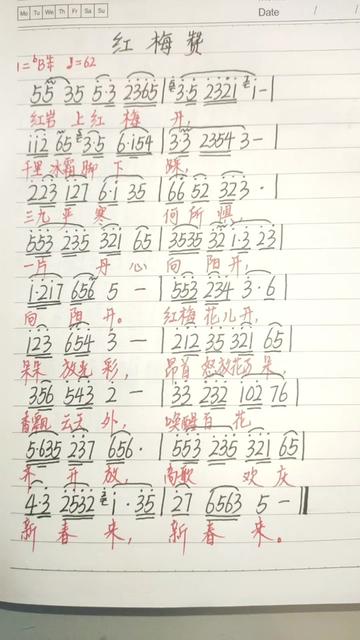 Mo Tu We Th Fr Sa Su
Date / /
红梅赞
1=ᵇB 4/4 ♩=62
55 35 5·3 2365 | 3·5 2321 1 - |
红岩上红梅开,
112 65 3·5 6·154 | 3·3 2354 3 - |
千里冰霜脚下踩,
223 127 6·1 35 | 66 52 323 · |
三九严寒何所惧,
553 235 321 65 | 3535 32 1·3 23 |
一片丹心向阳开,
1·217 656 5 - | 553 234 3·6 |
向阳开。红梅花儿开,
123 654 3 - | 212 35 321 65 |
朵朵放光彩,昂首怒放花万朵,
356 543 2 - | 33 232 102 76 |
香飘云天外,唤醒百花
5·635 237 656· | 553 235 321 65 |
齐开放,高歌欢庆
4·3 2532 1·35 | 27 6563 5 - ‖
新春来,新春来。